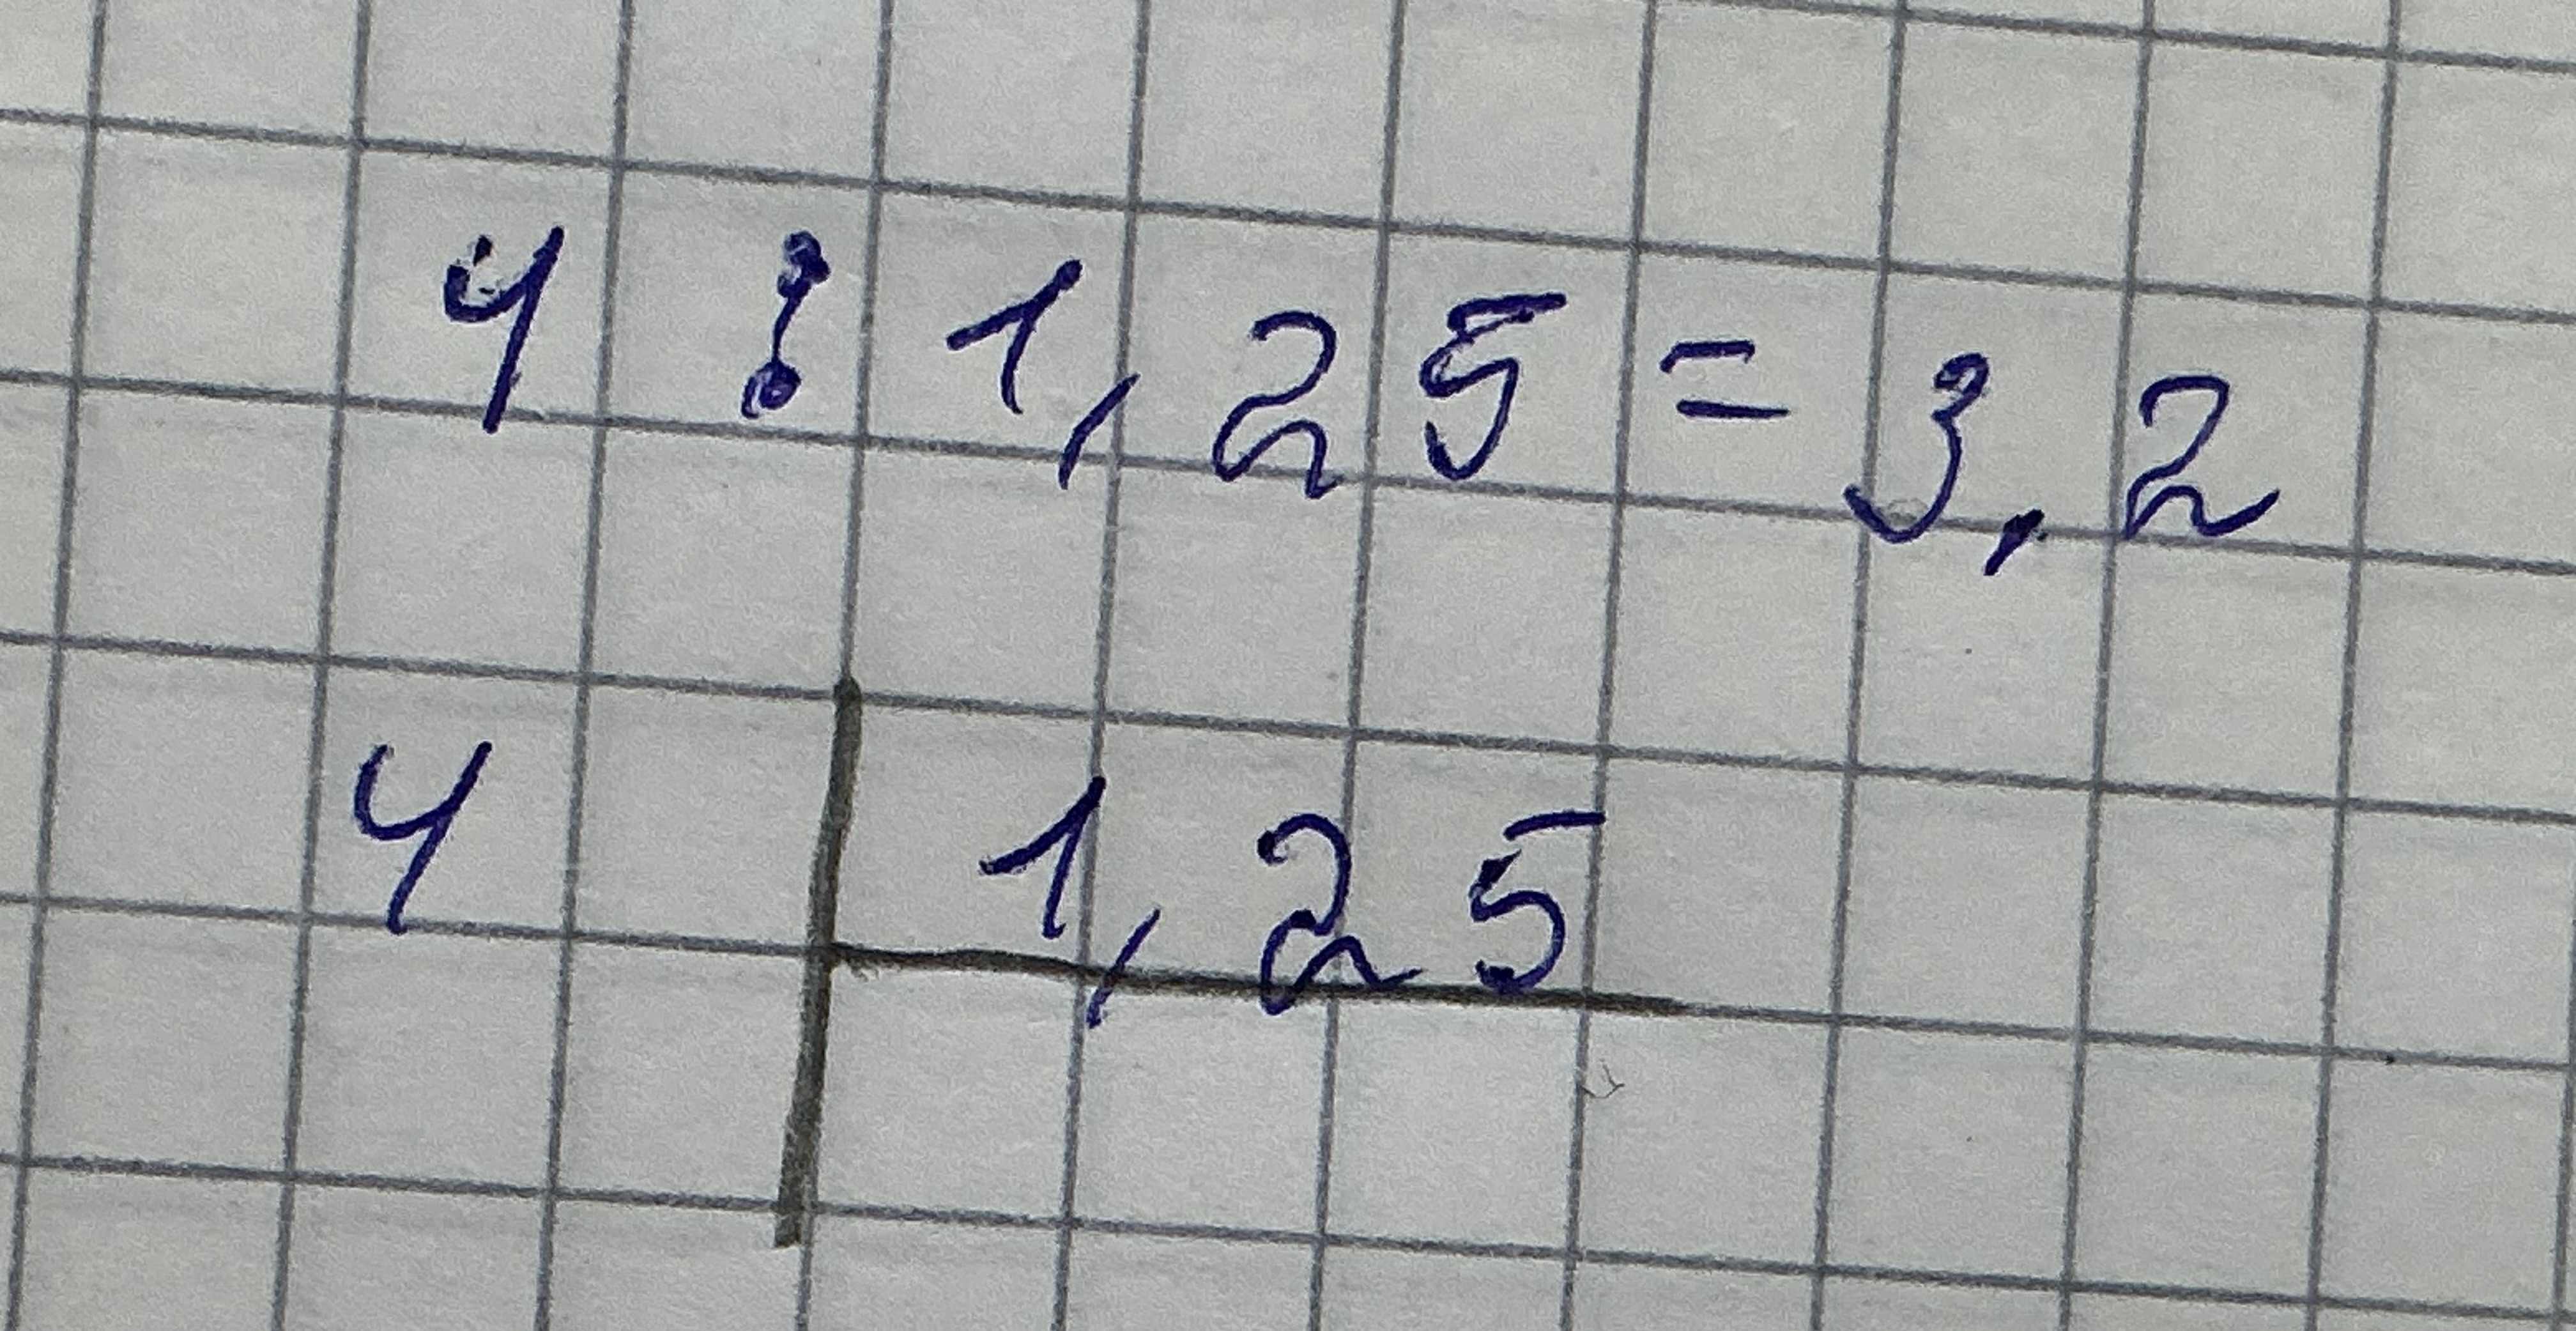 4 : 1,25 = 3,2
4 1,25